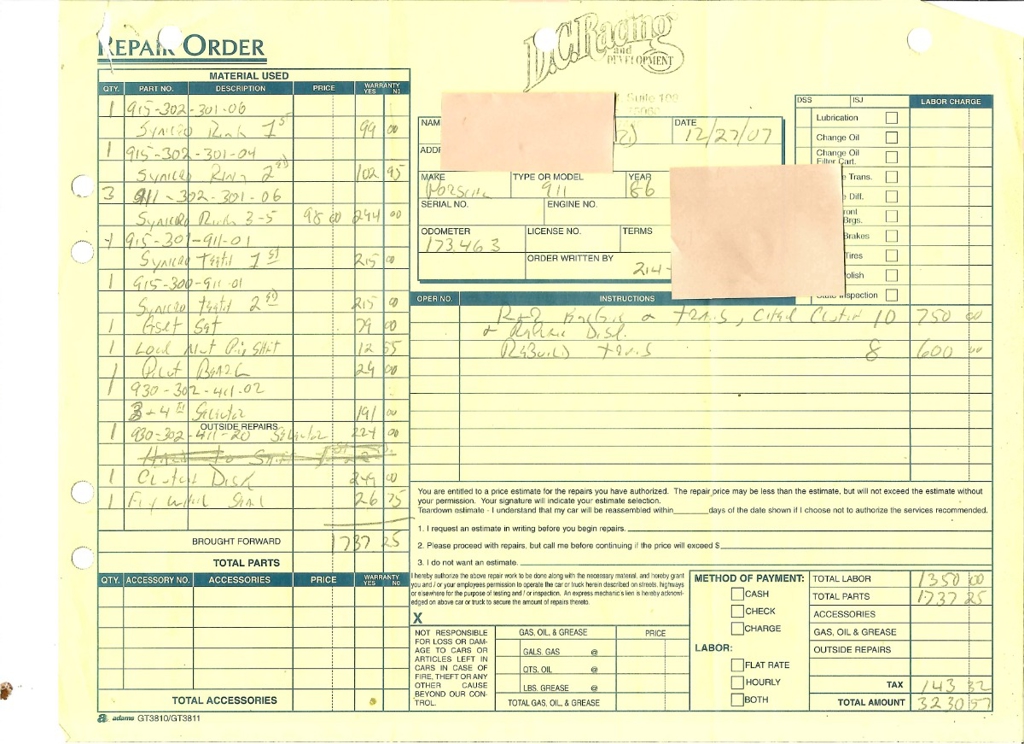 REPAIR ORDER
D.C. Racing
and
DEVELOPMENT
Suite 100
MATERIAL USED
QTY. PART NO. DESCRIPTION PRICE WARRANTY YES NO
1 915-302-301-06
Syncro Ring 1st 99 00
1 915-302-301-04
Syncro Ring 2nd 102 95
3 911-302-301-06
Syncro Ring 3-5 98 00 294 00
1 915-301-911-01
Syncro 1st 215 00
1 915-300-911-01
Syncro 2nd 215 00
1 Set 79 00
1 Lock Nut Pin Shft 12 55
1 Pilot 24 00
1 930-302-411-02
3-4th 191 00
OUTSIDE REPAIRS
1 930-302-411-20 224 00
1 Clutch Disk 249 00
1 Fly Wheel Seal 26 75
BROUGHT FORWARD 1737 25
TOTAL PARTS
QTY. ACCESSORY NO. ACCESSORIES PRICE WARRANTY YES NO
TOTAL ACCESSORIES
adams GT3810/GT3811
NAM
DATE
12/27/07
ADD
MAKE TYPE OR MODEL YEAR
Porsche 911 86
SERIAL NO. ENGINE NO.
ODOMETER LICENSE NO. TERMS
173463
ORDER WRITTEN BY
214-
DSS ISJ LABOR CHARGE
Lubrication
Change Oil
Change Oil
Filter Cart.
Trans.
Diff.
Brgs.
Brakes
Tires
State Inspection
OPER NO. INSTRUCTIONS
R+R Engine & Trans, Clutch 10 750 00
Disk
Rebuild Trans 8 600 00
You are entitled to a price estimate for the repairs you have authorized. The repair price may be less than the estimate, but will not exceed the estimate without
your permission. Your signature will indicate your estimate selection.
Teardown estimate - I understand that my car will be reassembled within______days of the date shown if I choose not to authorize the services recommended.
1. I request an estimate in writing before you begin repairs.
2. Please proceed with repairs, but call me before continuing if the price will exceed $
3. I do not want an estimate.
I hereby authorize the above repair work to be done along with the necessary material, and hereby grant
you and / or your employees permission to operate the car or truck herein described on streets, highways
or elsewhere for the purpose of testing and / or inspection. An express mechanic's lien is hereby acknowl-
edged on above car or truck to secure the amount of repairs thereto.
X
NOT RESPONSIBLE
FOR LOSS OR DAM-
AGE TO CARS OR
ARTICLES LEFT IN
CARS IN CASE OF
FIRE, THEFT OR ANY
OTHER CAUSE
BEYOND OUR CON-
TROL.
GAS, OIL, & GREASE PRICE
GALS. GAS @
QTS. OIL @
LBS. GREASE @
TOTAL GAS, OIL, & GREASE
METHOD OF PAYMENT:
CASH
CHECK
CHARGE
LABOR:
FLAT RATE
HOURLY
BOTH
TOTAL LABOR 1350 00
TOTAL PARTS 1737 25
ACCESSORIES
GAS, OIL & GREASE
OUTSIDE REPAIRS
TAX 143 32
TOTAL AMOUNT 3230 57